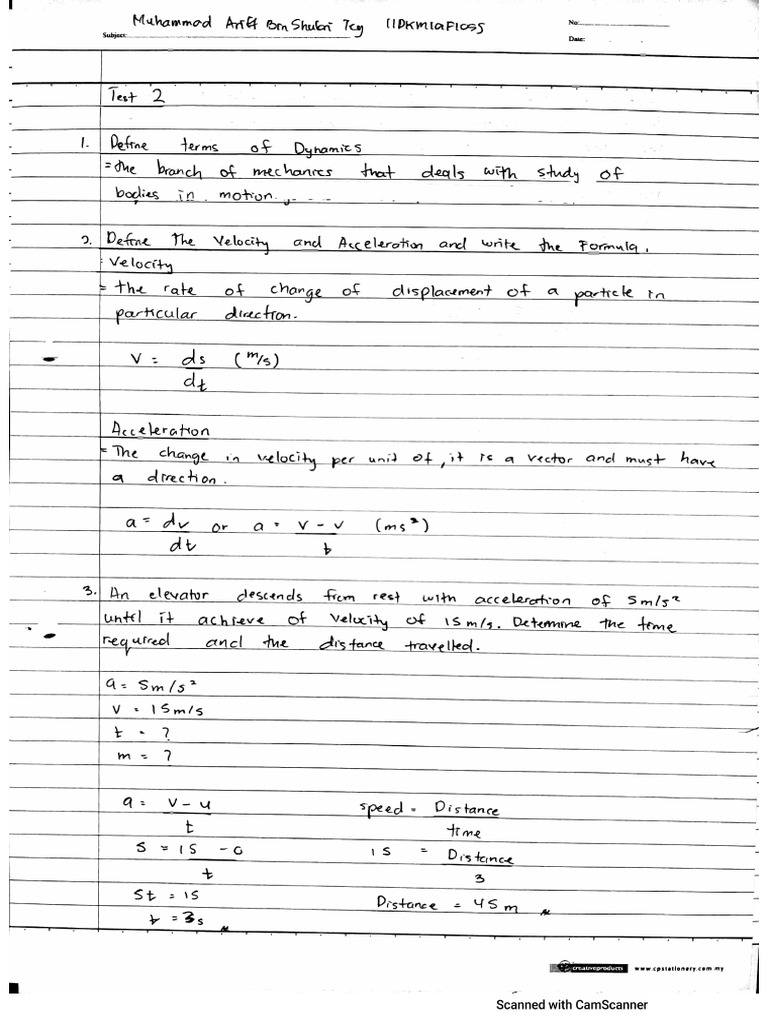 Muhammad Ariff Bin Shukri Tcy 11DKM19F1055
Subject: No:
Date:
Test 2
1. Define terms of Dynamics
= the branch of mechanics that deals with study of
bodies in motion.
2. Define The Velocity and Acceleration and write the Formula.
: Velocity
= the rate of change of displacement of a particle in
particular direction.
V = ds/dt (m/s)
Acceleration
= The change in velocity per unit of, it is a vector and must have
a direction.
a = dv/dt or a = v - v/t (ms²)
3. An elevator descends from rest with acceleration of 5m/s²
until it achieve of velocity of 15 m/s. Determine the time
required and the distance travelled.
a = 5m/s²
v = 15m/s
t = ?
m = ?
a = v - u/t speed = Distance/time
5 = 15 - 0/t 15 = Distance/3
5t = 15 Distance = 45 m
t = 3s
cp creativeproducts www.cpstationery.com.my
Scanned with CamScanner